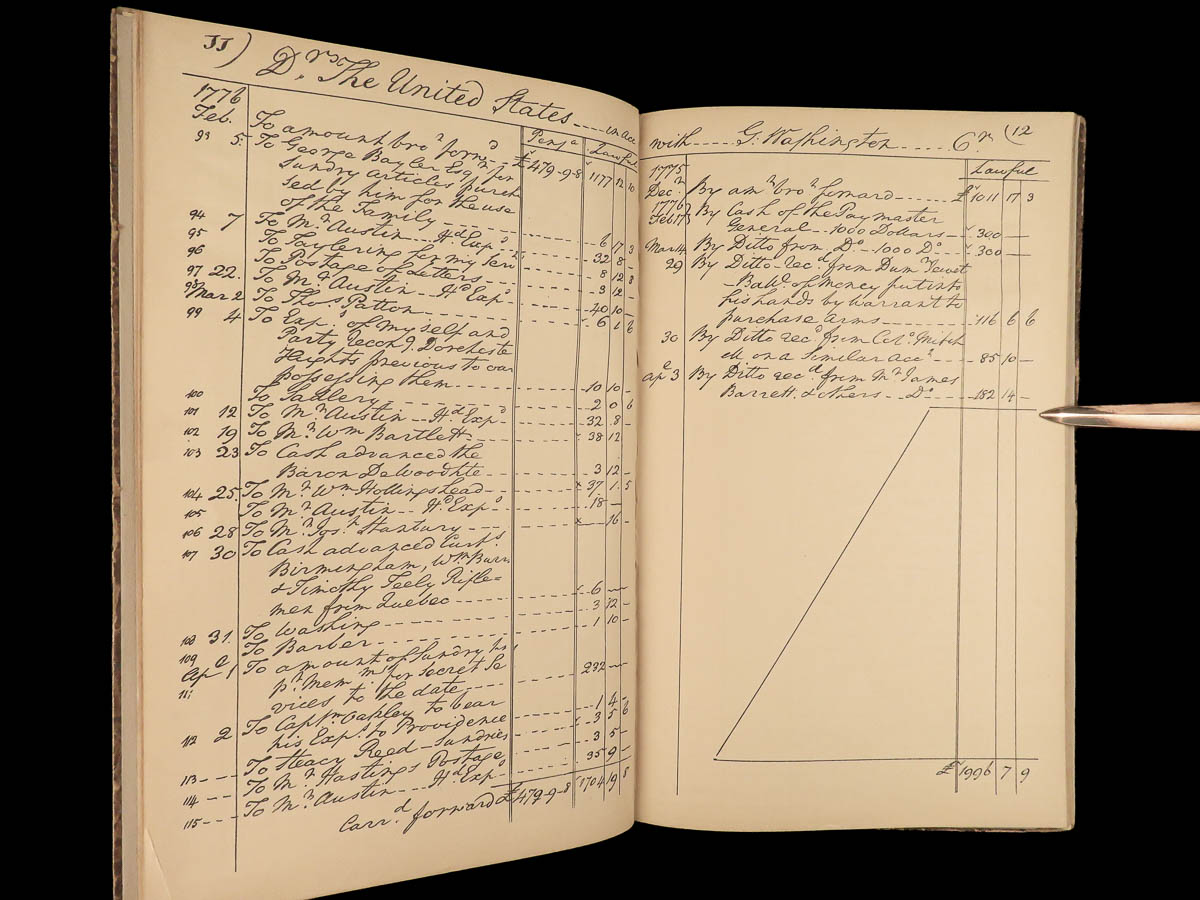 11)
Dr. The United States .... in acc
1776 Pens.a Lawful
Feb. To amount bro.t forw.d £479-9-8 1177 12 10
93 5. To George Baylor Esq.r for
Sundry articles purch
sed by him for the use
of the Family 6 17 3
94 7 To Mr. Austin H.d Exp.s 32 8 -
95 To Taylering for my Serv.ts 8 12 8
96 To Postage of Letters 3 12 -
97 22. To Mr. Austin - H.d Exp.s 40 10 -
98 Mar 2 To Tho.s Patton 6 1 6
99 4 To Exp.s of myself and
Party recon.g Dorcheste
Heights previous to our
possessing them 10 10 -
100 To Sadlery 2 0 6
101 12 To Mr. Austin - H.d Exp.s 32 8 -
102 19 To Mr. Wm Bartlett 38 12
103 23 To Cash advanced the
Baron De Woodhte 3 12 -
104 25. To Mr. Wm. Hollingshead × 37 1 5
105 To Mr. Austin - H.d Exp.s 18 -
106 28 To Mr. Jos.h Hanbury × 16 -
107 30 To Cash advanced Curt.s
Birmingham, Wm. Burns
& Timothy Feely Rifle=
men from Quebec 6 -
108 31. To Washing 3 12 -
109 To Barber 1 10 -
Ap.l 1 To amount of Sundry
111 p.r Mem.m for secret Se
vices to the date 232 -
112 2 To Capt.n Oakley to bear
his Exp.s to Providence 1 4 -
113 To Steacy Reed - Sundries 3 5 6
114 To Mr. Hastings Postage 3 5 -
115 To Mr. Austin - H.d Exp.s 35 9 -
Carr.d forward £479-9-8 1704 19 8
with .... G. Washington .... Cr. (12
1775 Lawful
Dec.r By am.t bro.t forward £1011 17 3
1776
Feb 17 By Cash of the Paymaster
General - 1000 Dollars 300 -
Mar 14 By Ditto from D.o - 1000 D.o 300 -
29 By Ditto - rec.d from Dum.r Jewet
- Bal.e of money put into
his hands by warrant to
purchase arms 116 6 6
30 By Ditto rec.d from Col.o Mitch
ell on a similar acc.t 85 10 -
Ap.l 3 By Ditto rec.d from Mr. James
Barrett & others - D.o 182 14 -
£1996 7 9